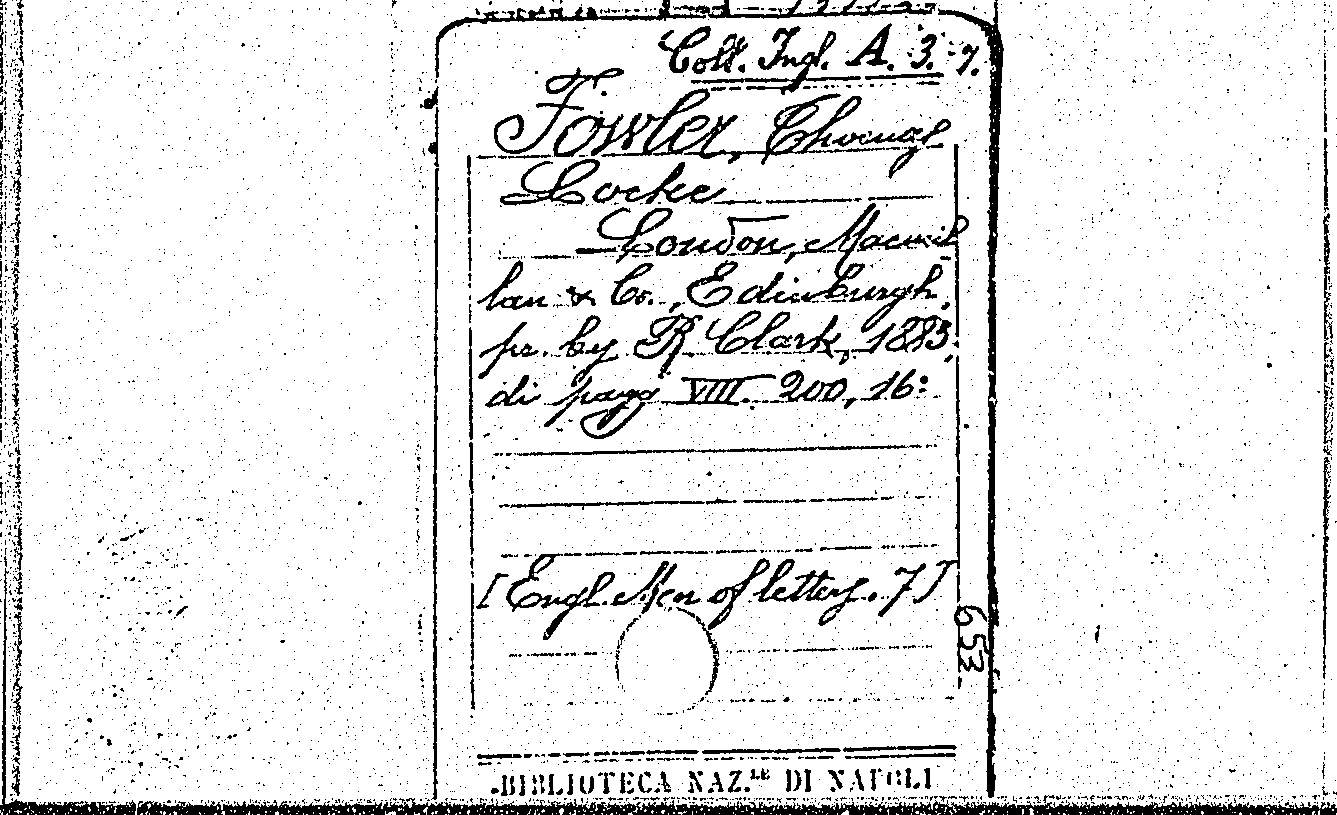 Coll. Ingl. A. 3. 7.
Fowler, Thomas
Locke
London, Macmil
lan & Co., Edinburgh,
pr. by R. Clark, 1883.
di pagg VIII. 200, 16º
[Engl. Men of letters. 7]
653.
BIBLIOTECA NAZ.LE DI NAPOLI